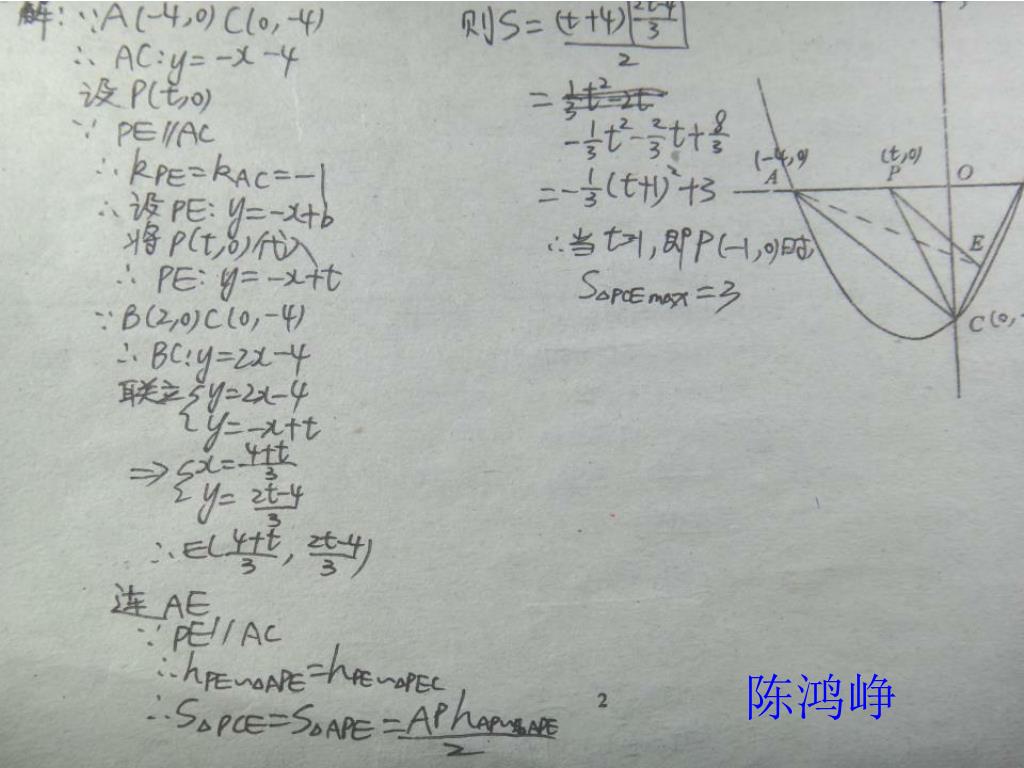 解：∵A(-4,0) C(0,-4)
∴ AC:y=-x-4
设 P(t,0)
∵ PE∥AC
∴ kPE=kAC=-1
∴ 设PE: y=-x+b
将 P(t,0)代入
∴ PE: y=-x+t
∵B(2,0) C(0,-4)
∴ BC:y=2x-4
联立{y=2x-4
{y=-x+t
⇒ {x=(4+t)/3
{y=(2t-4)/3
∴E((4+t)/3, (2t-4)/3)
连 AE
∵ PE∥AC
∴hPE~△APE=hPE~△PEC
∴S△PCE=S△APE=(AP hAP~△APE)/2
则S=((t+4)|(2t-4)/3|)/2
=
-1/3t²-2/3t+8/3
=-1/3(t+1)²+3
∴当 t=-1,即P(-1,0)时
S△PCEmax=3
(-4,0) (t,0)
A P O
E
C(0,-
2
陈鸿峥